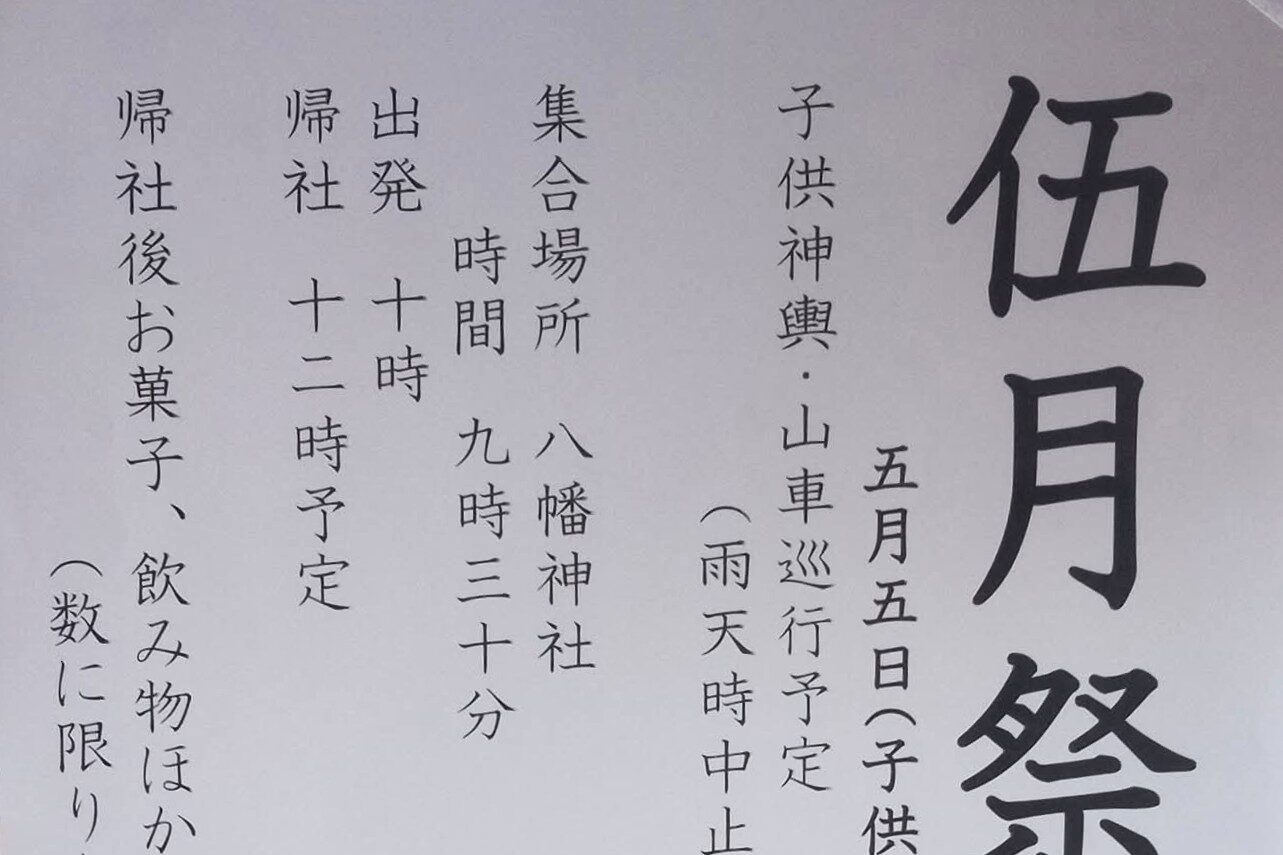 伍月祭
五月五日(子供
子供神輿・山車巡行予定
(雨天時中止
集合場所 八幡神社
時間 九時三十分
出発 十時
帰社 十二時予定
帰社後お菓子、飲み物ほか
(数に限り